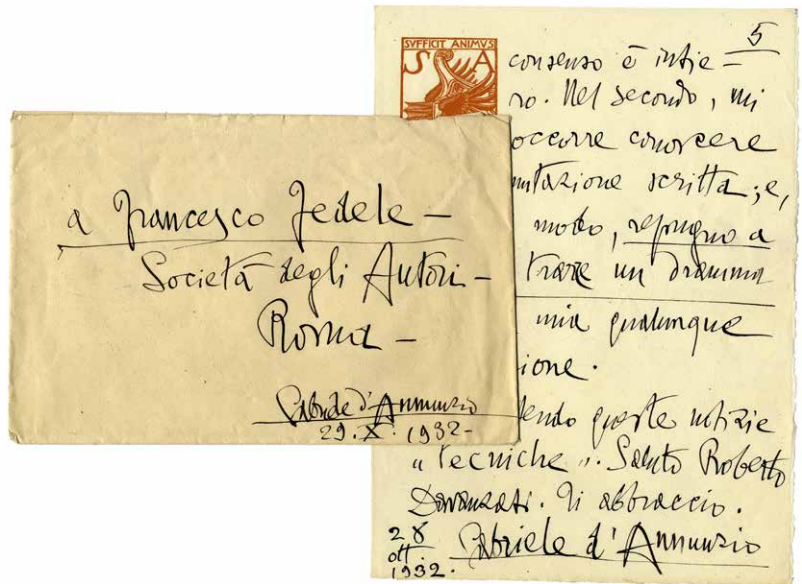 a Francesco Fedele –
Società degli Autori –
Roma –
Gabriele d'Annunzio
29. X. 1932–
SVFFICIT ANIMVS
S A
5
consenso è intie=
ro. Nel secondo, mi
occorre conoscere
mutazione scritta; e,
modo, repugno a
trarre un dramma
mia qualunque
ione.
endo queste notizie
« tecniche ». Saluto Roberto
Davanzati. Ti abbraccio.
28
ott.
1932.
Gabriele d'Annunzio